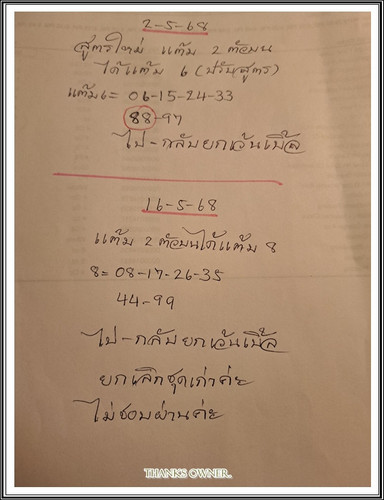 2-5-68
สูตรใหม่ แต้ม 2 ตัวบน
ได้แต้ม 6 (ปรับสูตร)
แต้ม 6 = 06-15-24-33
88-97
ไป-กลับยกเว้นเบิ้ล
16-5-68
แต้ม 2 ตัวบนได้แต้ม 8
8= 08-17-26-35
44-99
ไป-กลับยกเว้นเบิ้ล
ยกเลิกชุดเก่าค่ะ
ไม่ชอบผ่านค่ะ
THANKS OWNER.